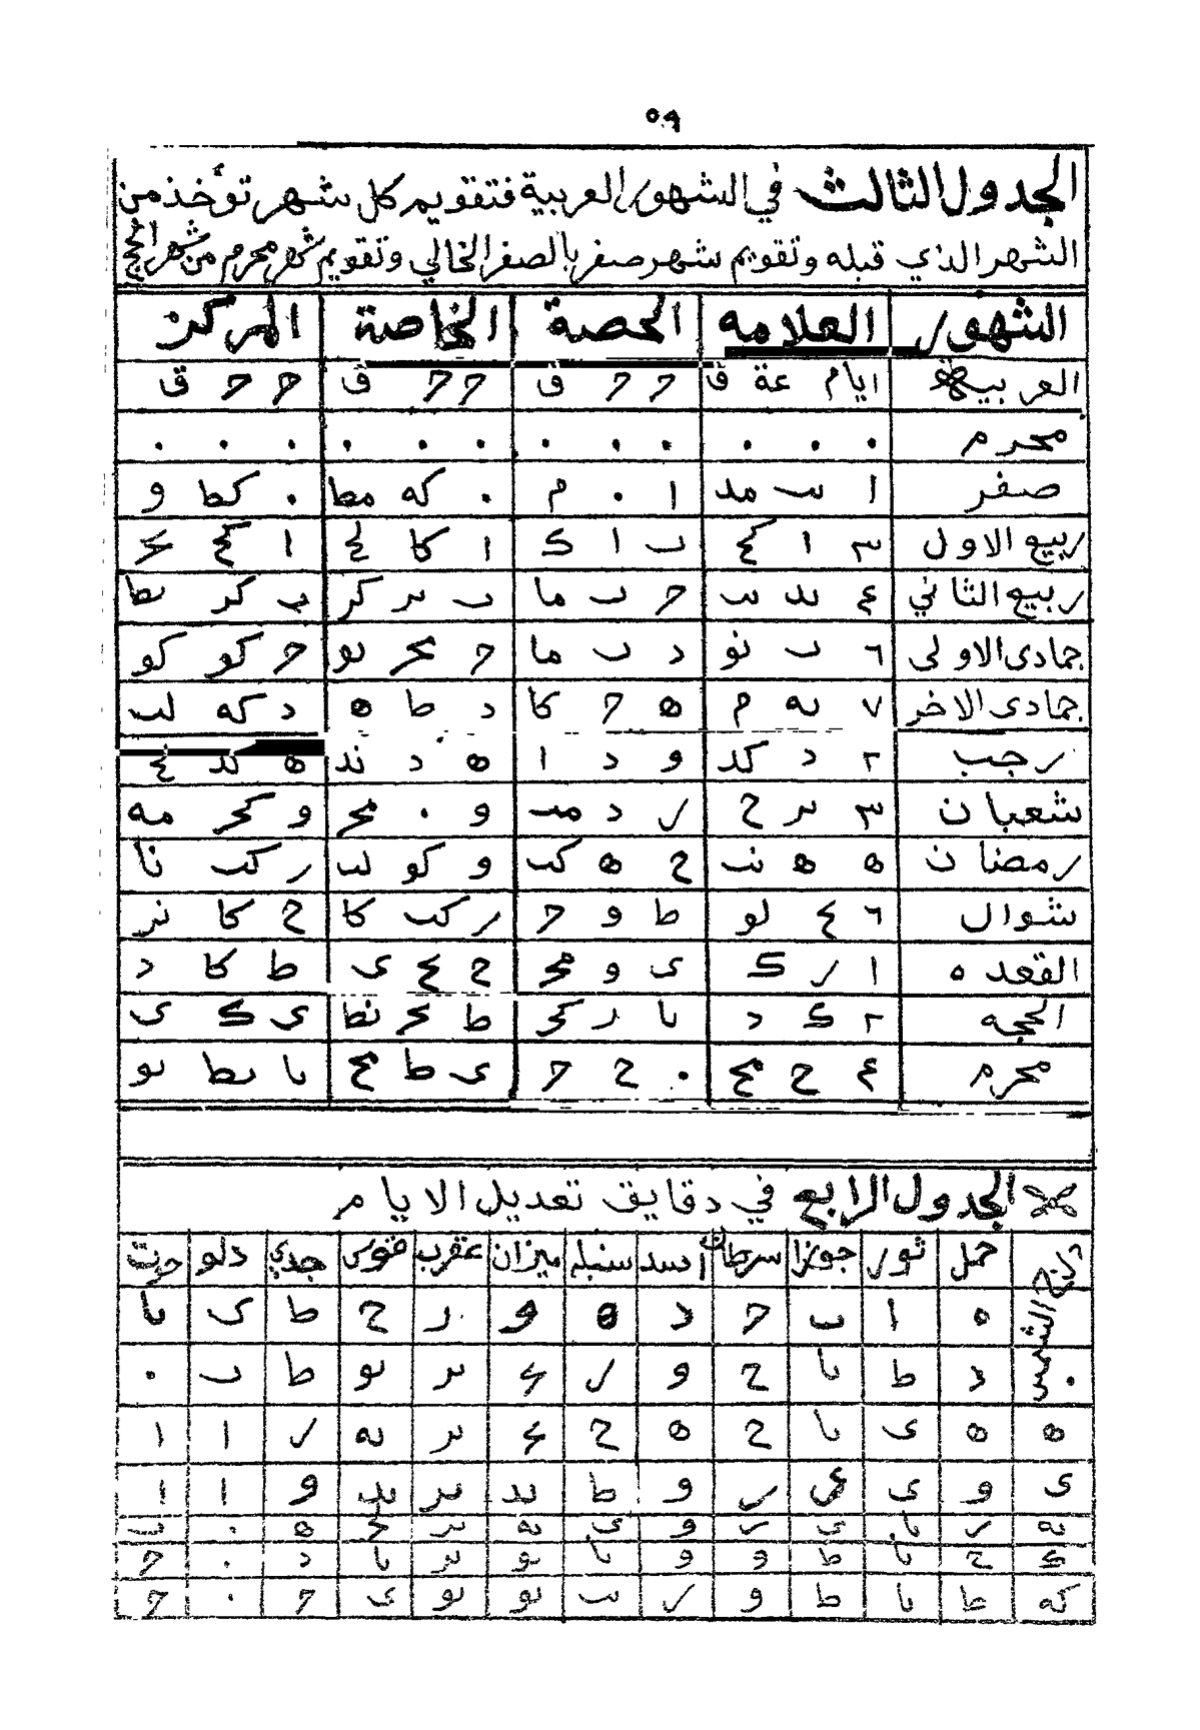 ٥٩
الجدول الثالث في الشهور العربية فتقويم كل شهر تؤخذ من
الشهر الذي قبله وتقويم شهر صفر بالصفر الخالي وتقويم شهر محرم من شهر الحج
الشهور العلامه الحصة الخاصة المركز
العربية ايام عة ق ح ح ق ح ح ق ح ح ق
محرم . . . . . . . . . . . .
صفر ١ ىىـ مد ١ . م . كه مط . كط و
ربيع الاول ٣ ١ كح ب ١ ك ١ كا لح ١ كح
ربيع الثاني ٤ يد يب ح ب ما ب ير كز ب كز نط
جمادى الاولى ٦ ب نو د ب ما ح يح نو ح كو كو
جمادى الاخر ٧ يه م ه ح كا د ط ه د كه لب
رجب ٢ د كد و د ا ه د ند ه كد
شعبان ٣ يز ح ز د مد و . مح و كح مه
رمضان ٥ ه نب ح ه كب و كو لب ز كب نا
شوال ٦ لو ط و ح ز كب كا ح كا نز
القعده ١ ز ك ى و مح ح يح ى ط كا د
الحجه ٢ ك د يا ز كح ط يح نط ى ك ى
محرم ٤ ح مح . ح ح ى ط مح يا يط نو
الجدول الرابع في دقايق تعديل الايام
حمل ثور جوزا سرطان أسد سنبله ميزان عقرب قوس جدي دلو حوت
ه ا ب ح د ه و ز ح ط ى يا
. د ط يا ح و ز يز يو ط ب .
ه ه ى يا ح ه ح يز يه ز ا ا
ى و ى ى ز و ط يد يز يد و ا ا
يه ز يا ى ز و ى يه يز يح ه . ب
ك ح يا ط و و يا يو يز يا د . ح
كه ط يا ط و ز يب يو يو ى ح . ح